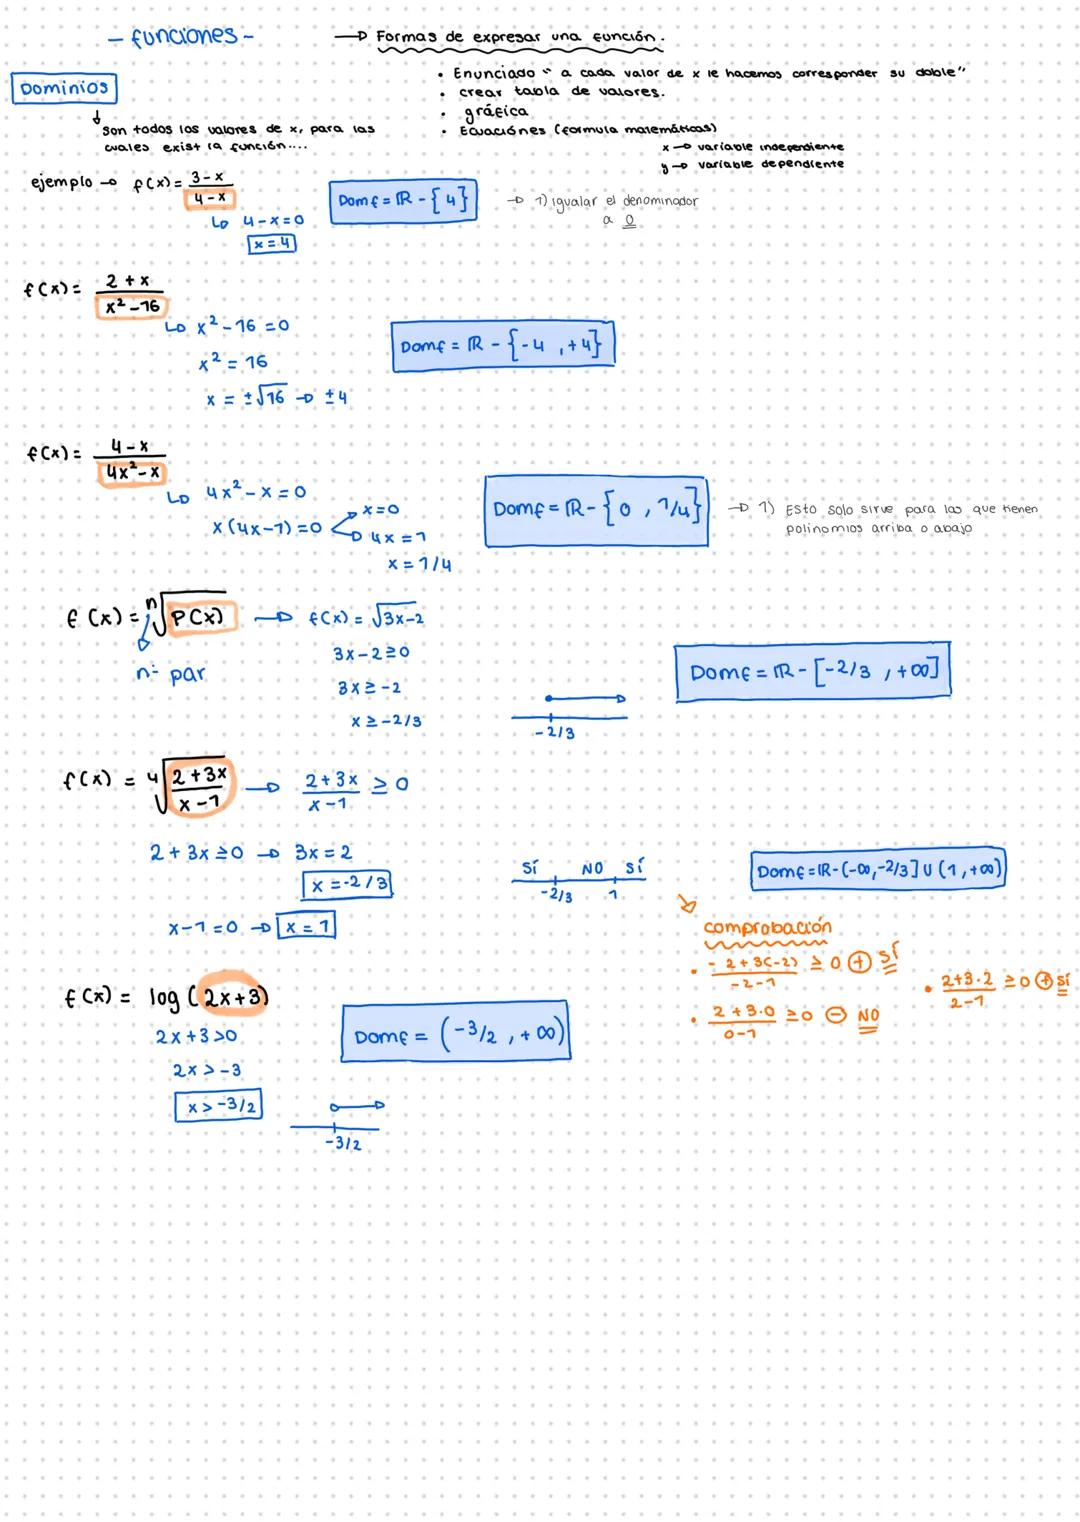 - funciones -
→ Formas de expresar una función.
Dominios
• Enunciado "a cada valor de x le hacemos corresponder su doble"
• crear tabla de valores.
• gráfica
• Ecuaciónes (formula matemáticas)
x → variable independiente
y → variable dependiente
↓ son todos los valores de x, para las
cuales exist la función....
ejemplo → f(x) = (3-x)/(4-x)
↳ 4-x=0
x=4
Dom f = ℝ - {4}
→ 1) igualar el denominador
a 0
f(x) = (2+x)/(x²-16)
↳ x²-16=0
x² = 16
x = ±√16 → ±4
Dom f = ℝ - {-4, +4}
f(x) = (4-x)/(4x²-x)
↳ 4x²-x=0
x(4x-1)=0
→ x=0
→ 4x=1
x=1/4
Dom f = ℝ - {0, 1/4}
→ 1) Esto solo sirve para las que tienen
polinomios arriba o abajo
f(x) = ⁿ√P(x) → f(x) = √3x-2
n: par
3x-2≥0
3x≥-2
x≥-2/3
-2/3
Dom f = ℝ - [-2/3, +∞]
f(x) = ⁴√((2+3x)/(x-1)) → (2+3x)/(x-1) ≥ 0
2+3x≥0 → 3x=2
x=-2/3
x-1=0 → x=1
SÍ NO SÍ
-2/3 1
Dom f = ℝ-(-∞,-2/3] U (1,+∞)
comprobación
• (-2+3(-2))/(-2-1) ≥ 0 ⊕ SÍ
• (2+3·0)/(0-1) ≥0 ⊖ NO
• (2+3·2)/(2-1) ≥0 ⊕ SÍ
f(x) = log (2x+3)
2x+3>0
2x>-3
x>-3/2
-3/2
Dom f = (-3/2, +∞)